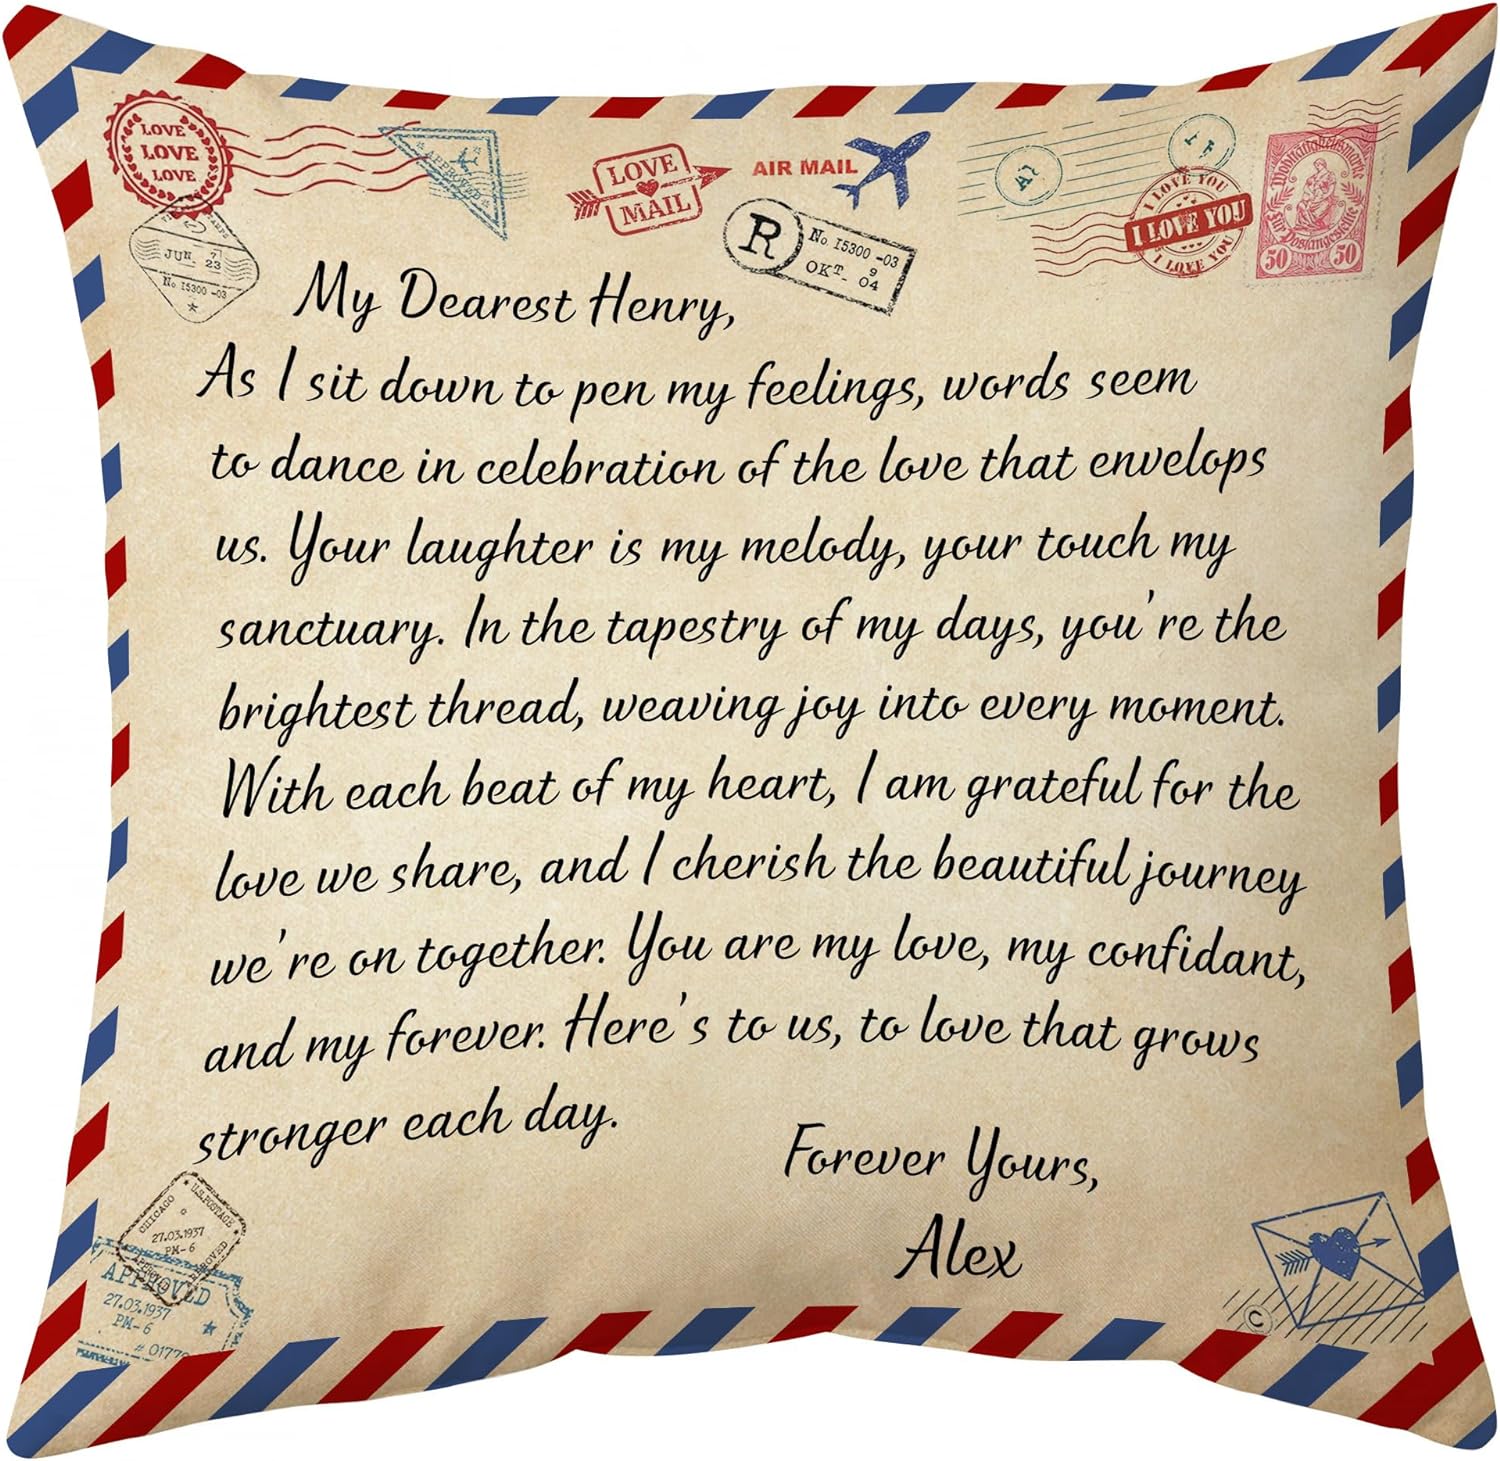 LOVE
LOVE
LOVE
APPROVED
LOVE
MAIL
AIR MAIL
R
No 15300 -03
9
OKT- 04
I LOVE YOU
I LOVE YOU
I LOVE YOU
50 50
JUN 7
23
No 15300 -03
My Dearest Henry,
As I sit down to pen my feelings, words seem
to dance in celebration of the love that envelops
us. Your laughter is my melody, your touch my
sanctuary. In the tapestry of my days, you're the
brightest thread, weaving joy into every moment.
With each beat of my heart, I am grateful for the
love we share, and I cherish the beautiful journey
we're on together. You are my love, my confidant,
and my forever. Here's to us, to love that grows
stronger each day.
Forever Yours,
Alex
CHICAGO
U.S.POSTAGE
27.03.1937
PM-6
APPROVED
27.03.1937
PM-6
# 01779
©